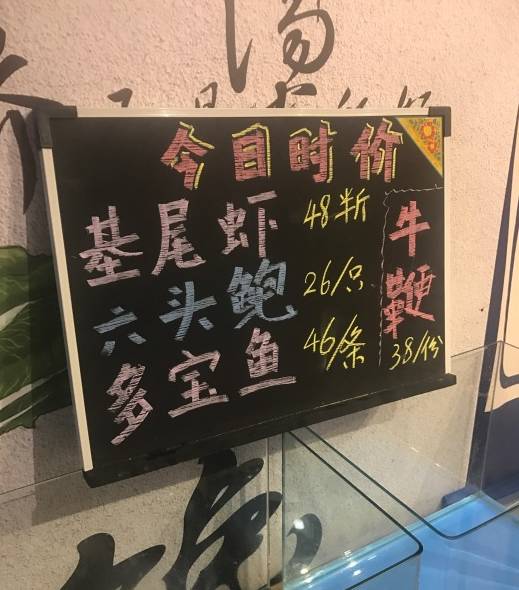 今日时价
基尾虾 48半斤
六头鲍 26/只
多宝鱼 46/条
牛鞭
38/份